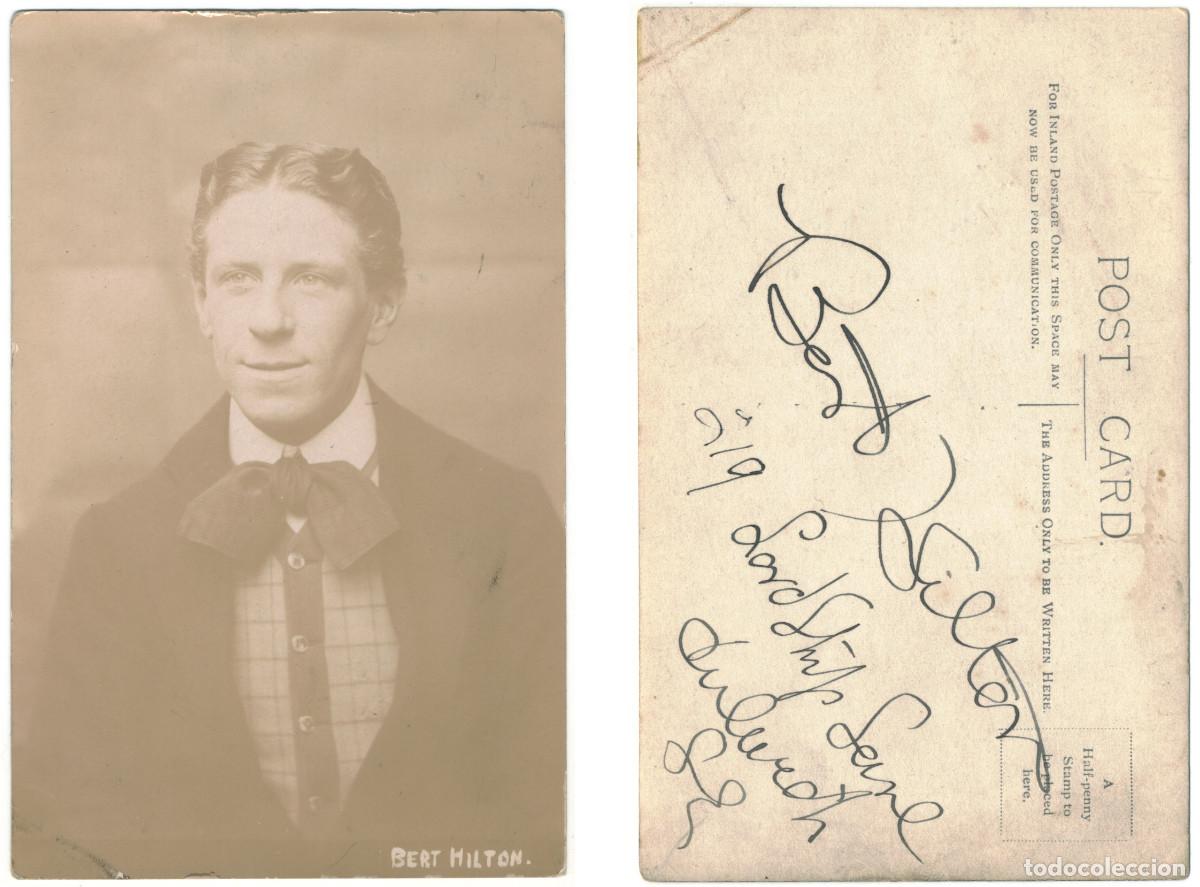 BERT HILTON.
POST CARD.
FOR INLAND POSTAGE ONLY THIS SPACE MAY
NOW BE USED FOR COMMUNICATION.
THE ADDRESS ONLY TO BE WRITTEN HERE.
A
Half-penny
Stamp to
be placed
here.
Bert Hilton
219
Lordship Lane
Dulwich
S.E.
todocoleccion